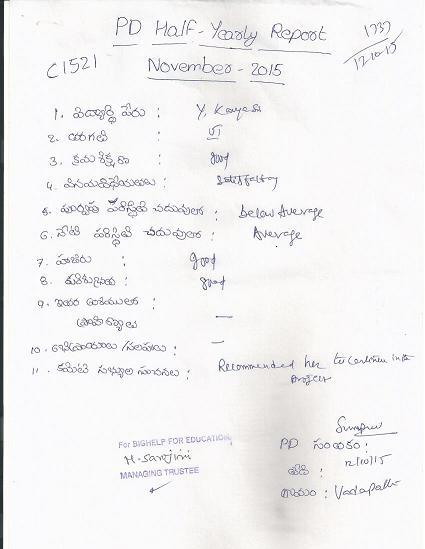 PD Half-Yearly Report
1737
12-10-15
C1521
November - 2015
1. విద్యార్థి పేరు : Y. Kavya
2. తరగతి : VI
3. క్రమశిక్షణ : good
4. వినయవిధేయతలు : satisfactory
5. పూర్వపు పరిస్థితి చదువులో : below Average
6. నేటి పరిస్థితి చదువులో : Average
7. హాజరు : good
8. పరిశుభ్రత : good
9. ఇతర అంశములలో
ప్రావీణ్యాలు —
10. అభిప్రాయాలు సలహాలు : —
11. కమిటి సభ్యుల సూచనలు : Recommended her to continue in the
project
For BIGHELP FOR EDUCATION,
MANAGING TRUSTEE
PD సంతకం :
తేది : 12/10/15
గ్రామం : Vadapalli